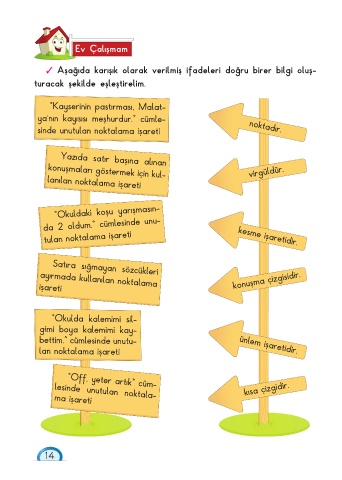 Ev Çalışmam
✓ Aşağıda karışık olarak verilmiş ifadeleri doğru birer bilgi oluş-
turacak şekilde eşleştirelim.
"Kayserinin pastırması, Malat-
ya'nın kayısısı meşhurdur." cümle-
sinde unutulan noktalama işareti
Yazıda satır başına alınan
konuşmaları göstermek için kul-
lanılan noktalama işareti
"Okuldaki koşu yarışmasın-
da 2 oldum." cümlesinde unu-
tulan noktalama işareti
Satıra sığmayan sözcükleri
ayırmada kullanılan noktalama
işareti
"Okulda kalemimi sil-
gimi boya kalemimi kay-
bettim." cümlesinde unutu-
lan noktalama işareti
"Off, yeter artık" cüm-
lesinde unutulan noktala-
ma işareti
noktadır.
virgüldür.
kesme işaretidir.
konuşma çizgisidir.
ünlem işaretidir.
kısa çizgidir.
14